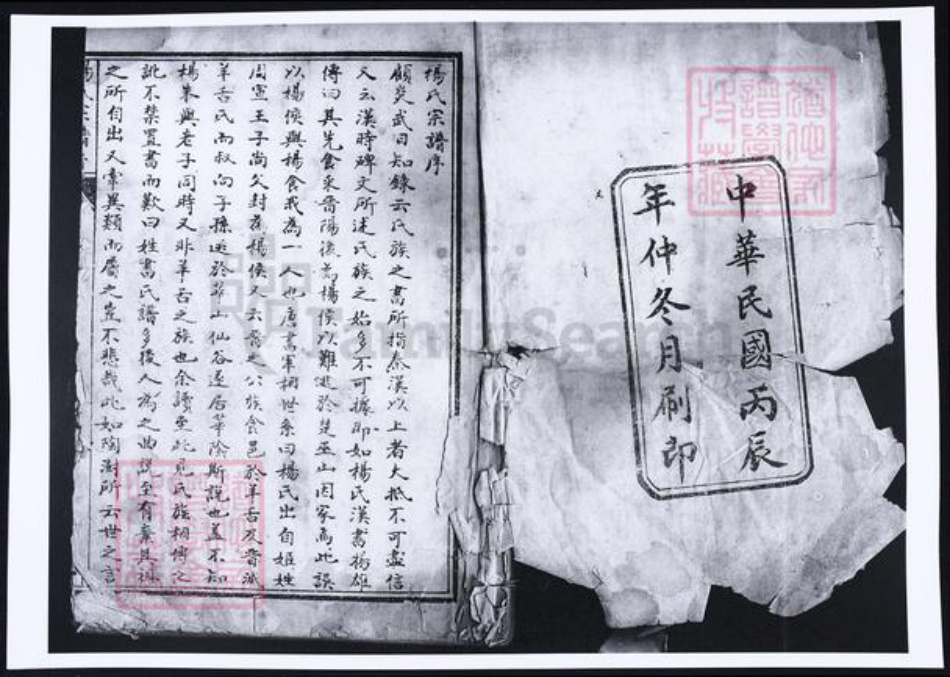 中華民國丙辰
年仲冬月刷印
楊氏宗譜序
顧炎武日知錄云氏族之書所指秦漢以上者大抵不可盡信
又云漢時碑文所述氏族之始多不可據即如楊氏漢書揚雄
傳曰其先食采晉陽後為楊侯以難逃於楚巫山因家焉此誤
以楊侯與楊食我為一人也唐書宰相世系曰楊氏出自姬姓
周宣王子尚父封為楊侯又云晉之公族食邑於羊舌及晉滅
羊舌氏而叔向子孫逃於華山仙谷遂居華陰斯說也蓋不知
楊朱與老子同時又非羊舌之族也余讀至此見氏族相傳之
訛不禁置書而歎曰姓書氏譜多後人為之曲說至有棄其祖
之所自出又牽異類而屬之豈不悲哉此如陶澍所云世之言
FamilySearch